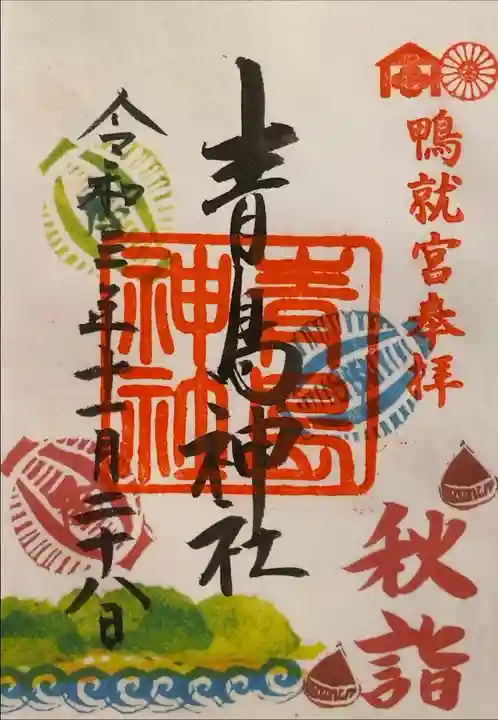 鴨就宮奉拝
秋詣
青島神社
青島神社
令和三年十一月二十八日